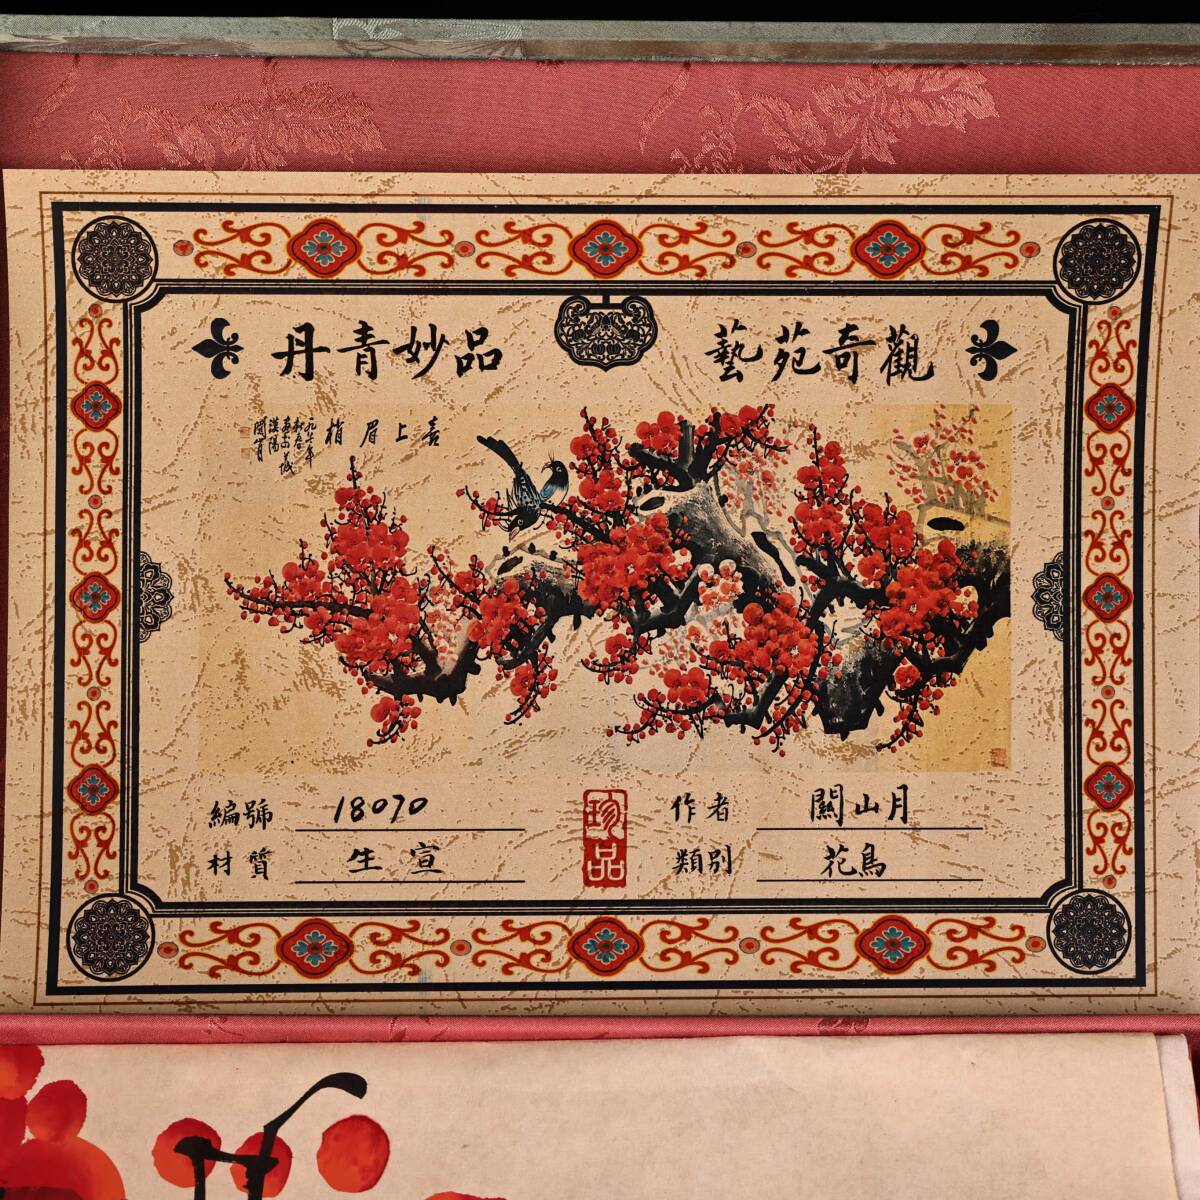 丹青妙品
藝苑奇觀
喜上眉梢
編號 18070
材質 生宣
珍品
作者 關山月
類別 花鳥